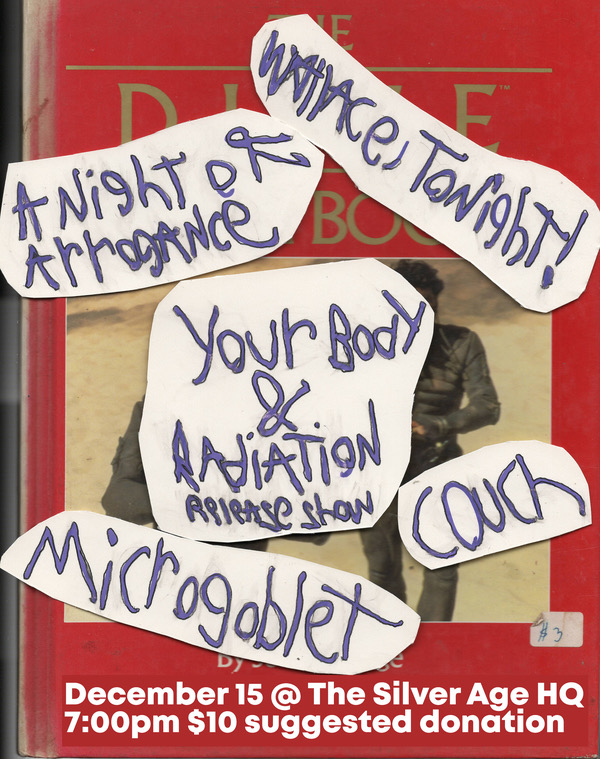 THE
Wallace, Tonight!
A Night Of
Arrogance
Your Body
&
Radiation
Release Show
Couch
Microgoblet
By
December 15 @ The Silver Age HQ
7:00pm $10 suggested donation